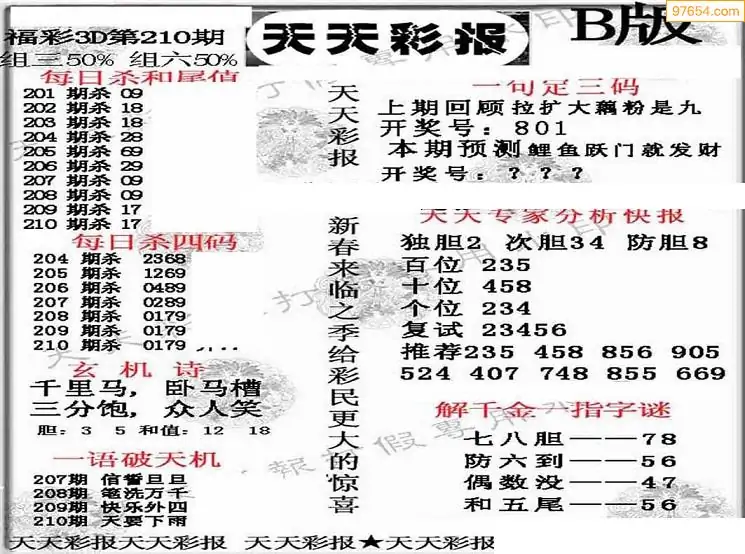 97654.com
福彩3D第210期
组三50% 组六50%
天天彩报
B版
每日杀和尾值
201 期杀 09
202 期杀 18
203 期杀 18
204 期杀 28
205 期杀 69
206 期杀 29
207 期杀 09
208 期杀 09
209 期杀 17
210 期杀 17
每日杀四码
204 期杀 2368
205 期杀 1269
206 期杀 0489
207 期杀 0289
208 期杀 0179
209 期杀 0179
210 期杀 0179
玄机诗
千里马，卧马槽
三分饱，众人笑
胆：3 5 和值：12 18
一语破天机
207期 信誓旦旦
208期 笔洗万千
209期 快乐外四
210期 天要下雨
天天彩报
新春来临之季给彩民更大的惊喜
一句定三码
上期回顾拉扩大藕粉是九
开奖号：801
本期预测鲤鱼跃门就发财
开奖号：？？？
天天专家分析快报
独胆2 次胆34 防胆8
百位 235
十位 458
个位 234
复试 23456
推荐235 458 856 905
524 407 748 855 669
解千金一指字谜
七八胆——78
防六到——56
偶数没——47
和五尾——56
天天彩报天天彩报 天天彩报★天天彩报